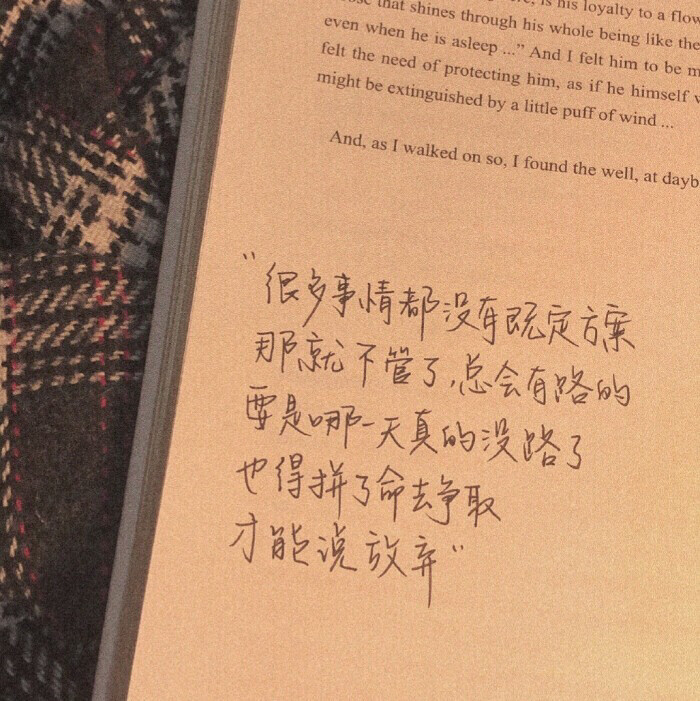 is his loyalty to a
that shines through his whole being like the
even when he is asleep ...” And I felt him to be
felt the need of protecting him, as if he himself
might be cxtinguished by a little puff of wind ...
And, as I walked on so, I found the well, at
“很多事情都没有既定方案
那就不管了,总会有路的
要是哪一天真的没路了
也得拼了命去争取
才能说放弃”